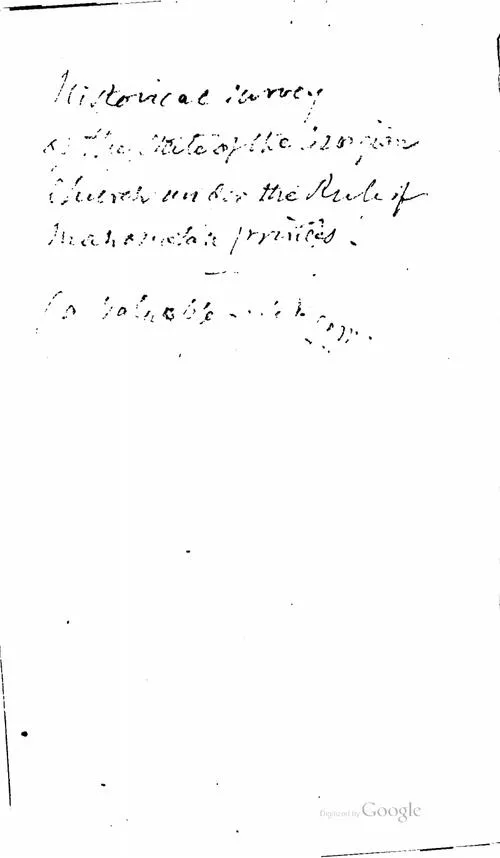 Historical survey
of the State of the Georgian
Church under the Rule of
Mahometan princes.
(a valuable
Digitized by Google